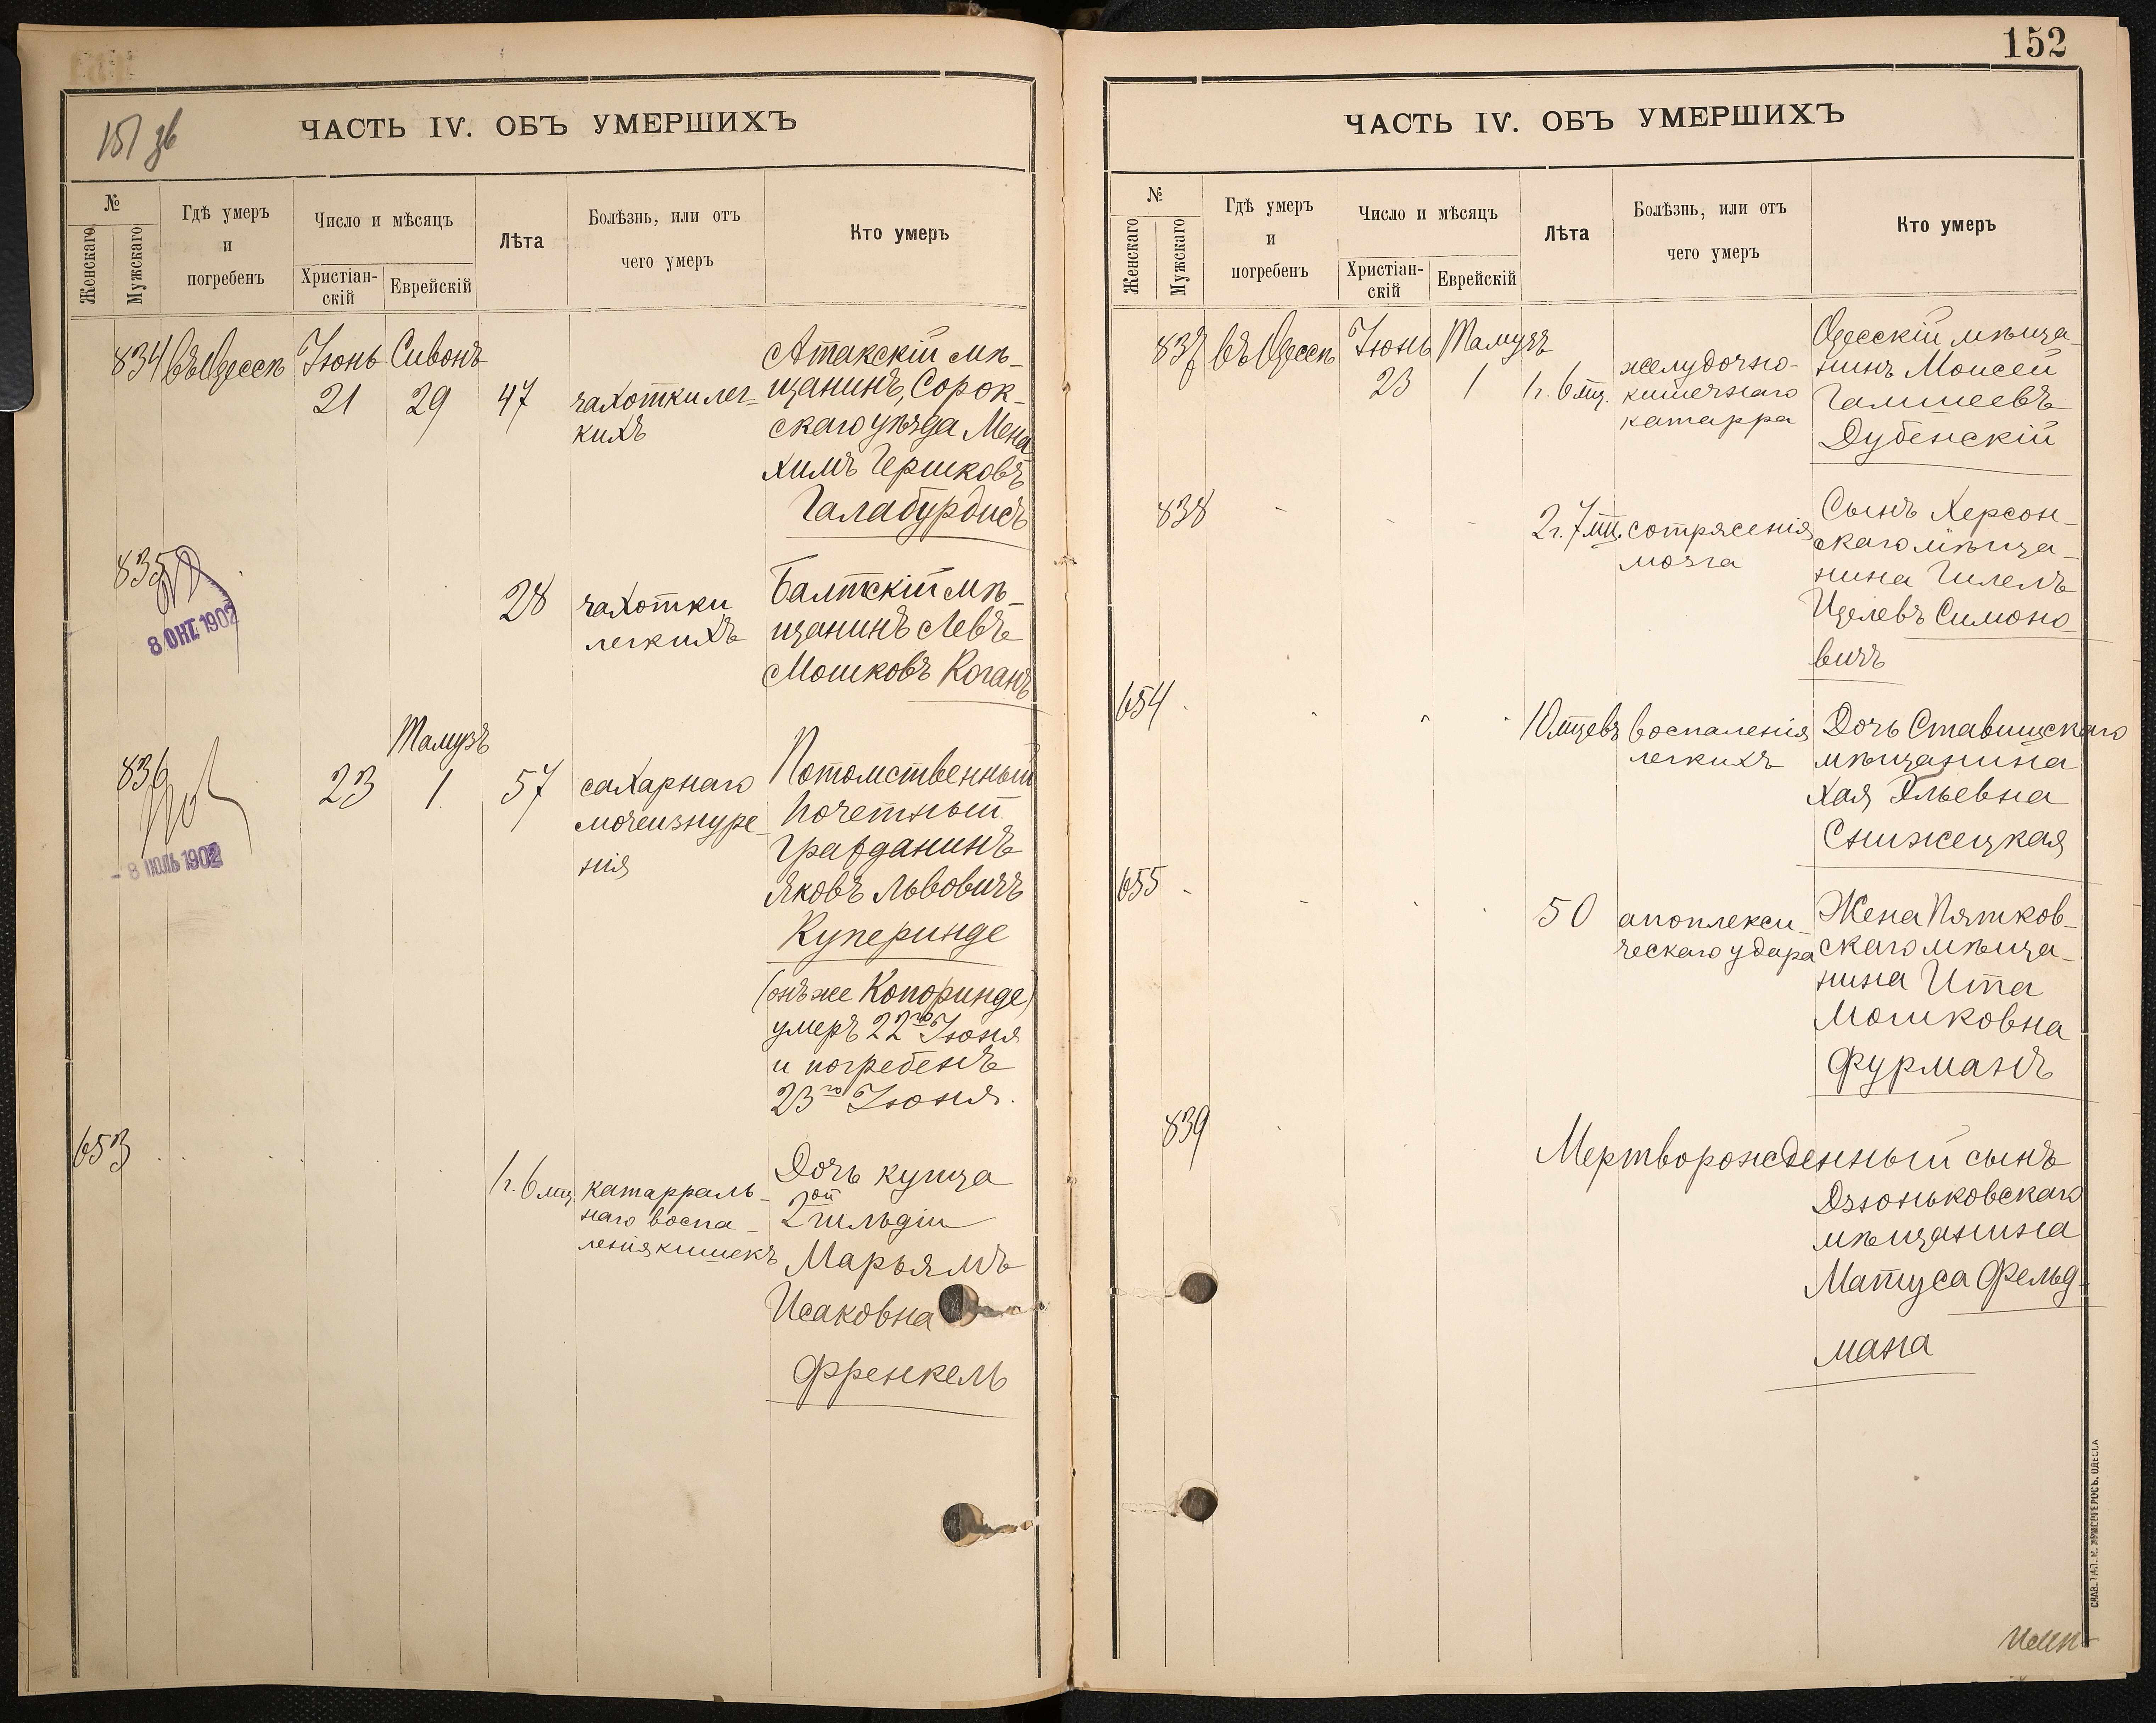 151 зв
ЧАСТЬ IV. ОБЪ УМЕРШИХЪ
№
Женскаго
Мужскаго
Гдѣ умеръ
и
погребенъ
Число и мѣсяцъ
Христіан-
скій
Еврейскій
Лѣта
Болѣзнь, или отъ
чего умеръ
Кто умеръ
834 Въ Одессѣ Іюнь Сивонъ
21 29 47
чахотки лег-
кихъ
Атакскій мѣ-
щанинъ, Сорок-
скаго уѣзда Мена
химъ Гершковъ
Галабурдисъ
835
8 ОКТ 1902
28
чахотки
легкихъ
Балтскій мѣ-
щанинъ Левъ
Мошковъ Коганъ
836
- 8 ІЮЛЬ 1902
Тамузъ
23 1. 57
сахарнаго
мочеизнуре-
нія
Потомственный
почетный
гражданинъ
Яковъ Львовичъ
Куперинде
(онъ же Копоринде)
умеръ 22го Іюня
и погребенъ
23го Іюня.
653
1г. 6 мц.
катарраль-
наго воспа-
ленія кишекъ
Дочь купца
2ой гильдіи
Марьямъ
Исаковна
Френкель
152
ЧАСТЬ IV. ОБЪ УМЕРШИХЪ
№
Женскаго
Мужскаго
Гдѣ умеръ
и
погребенъ
Число и мѣсяцъ
Христіан-
скій
Еврейскій
Лѣта
Болѣзнь, или отъ
чего умеръ
Кто умеръ
837 въ Одессѣ Іюнь Тамузъ
23 1 1г. 6 мц.
желудочно-
кишечнаго
катарра
Одесскій мѣща-
нинъ Моисей
Гамшеевъ
Дубенскій
838
2г. 7 мц.
сотрясенія
мозга
Сынъ Херсон-
скаго мѣща-
нина Гилелъ
Иделевъ Симоно-
вичъ
654
10 мцевъ
воспаленія
легкихъ
Дочь Ставищскаго
мѣщанина
Хая Эльевна
Снижецкая
655
50
апоплекси-
ческаго удара
Жена Пятков-
скаго мѣща-
нина Ита
Мошковна
Фурманъ
839
Мертворожденный сынъ
Дзюньковскаго
мѣщанина
Матуса Фельд-
мана
СЛАВ. ТИП. Н. ХРИСОГЕЛОСЪ. ОДЕССА